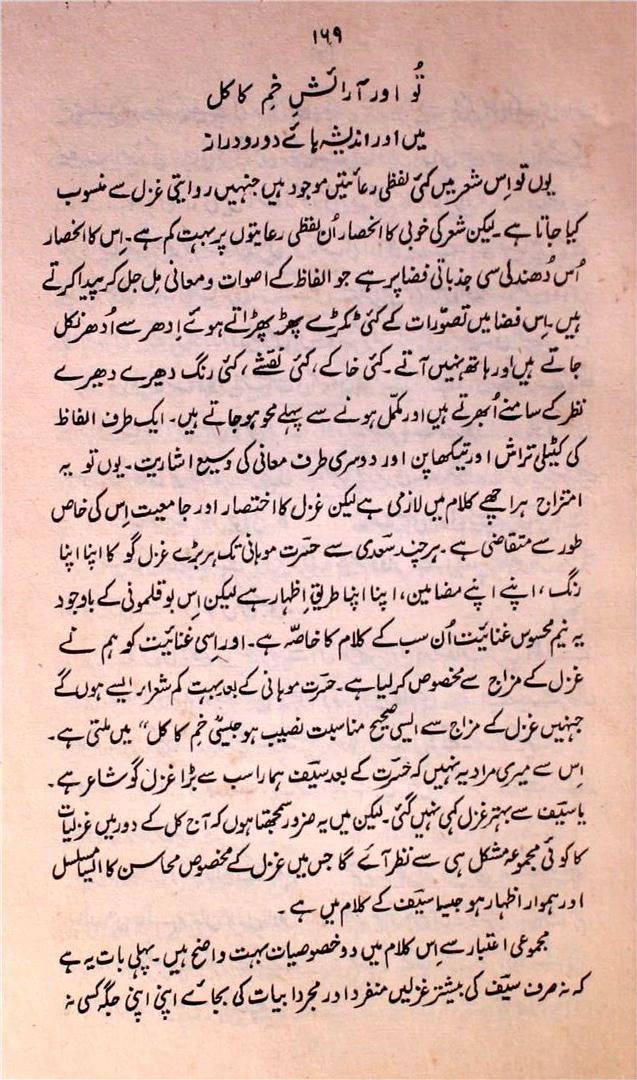 ۱۶۹
تُو اور آرائشِ خمِ کاکل
میں اور اندیشہ ہائے دور و دراز
یوں تو اِس شعر میں کئی لفظی رعائتیں موجود ہیں جنہیں روایتی غزل سے منسوب
کیا جاتا ہے۔ لیکن شعر کی خوبی کا انحصار اُن لفظی رعایتوں پر بہت کم ہے۔ اِس کا انحصار
اُس دُھندلی سی جذباتی فضا پر ہے جو الفاظ کے اصوات و معانی مِل جل کر پیدا کرتے
ہیں۔ اِس فضا میں تصوّرات کے کئی ٹکڑے پھڑپھڑاتے ہوئے اِدھر سے اُدھر نکل
جاتے ہیں اور ہاتھ نہیں آتے۔ کئی خاکے، کئی نقشے، کئی رنگ دھیرے دھیرے
نظر کے سامنے اُبھرتے ہیں اور مکمّل ہونے سے پہلے محو ہو جاتے ہیں۔ ایک طرف الفاظ
کی کٹیلی تراش اور تیکھا پن اور دوسری طرف معانی کی وسیع اشاریت۔ یوں تو یہ
امتزاج ہر اچھے کلام میں لازمی ہے لیکن غزل کا اختصار اور جامعیت اِس کی خاص
طور سے متقاضی ہے۔ ہر چند سعدی سے حسرت موہانی تک ہر بڑے غزل گو کا اپنا اپنا
رنگ، اپنے اپنے مضامین، اپنا اپنا طریقِ اظہار ہے لیکن اِس بوقلمونی کے باوجود
یہ نیم محسوس غنائیت اُن سب کے کلام کا خاصّہ ہے۔ اور اِسی غنائیت کو ہم نے
غزل کے مزاج سے مخصوص کر لیا ہے۔ حسرت موہانی کے بعد بہت کم شعرار ایسے ہوں گے
جنہیں غزل کے مزاج سے ایسی صحیح مناسبت نصیب ہو جیسی خمِ کاکل" میں ملتی ہے۔
اِس سے میری مراد یہ نہیں کہ حسرت کے بعد سیف ہمارا سب سے بڑا غزل گو شاعر ہے۔
یا سیف سے بہتر غزل کہی نہیں گئی۔ لیکن میں یہ ضرور سمجھتا ہوں کہ آج کل کے دور میں غزلیات
کا کوئی مجموعہ مشکل ہی سے نظر آئے گا جس میں غزل کے مخصوص محاسن کا ایسا مسلسل
اور ہموار اظہار ہو جیسا سیف کے کلام میں ہے۔
مجموعی اعتبار سے اِس کلام میں دو خصوصیات بہت واضح ہیں۔ پہلی بات یہ ہے
کہ نہ صرف سیف کی بیشتر غزلیں منفرد اور مجرد ابیات کی بجائے اپنی اپنی جگہ کسی نہ